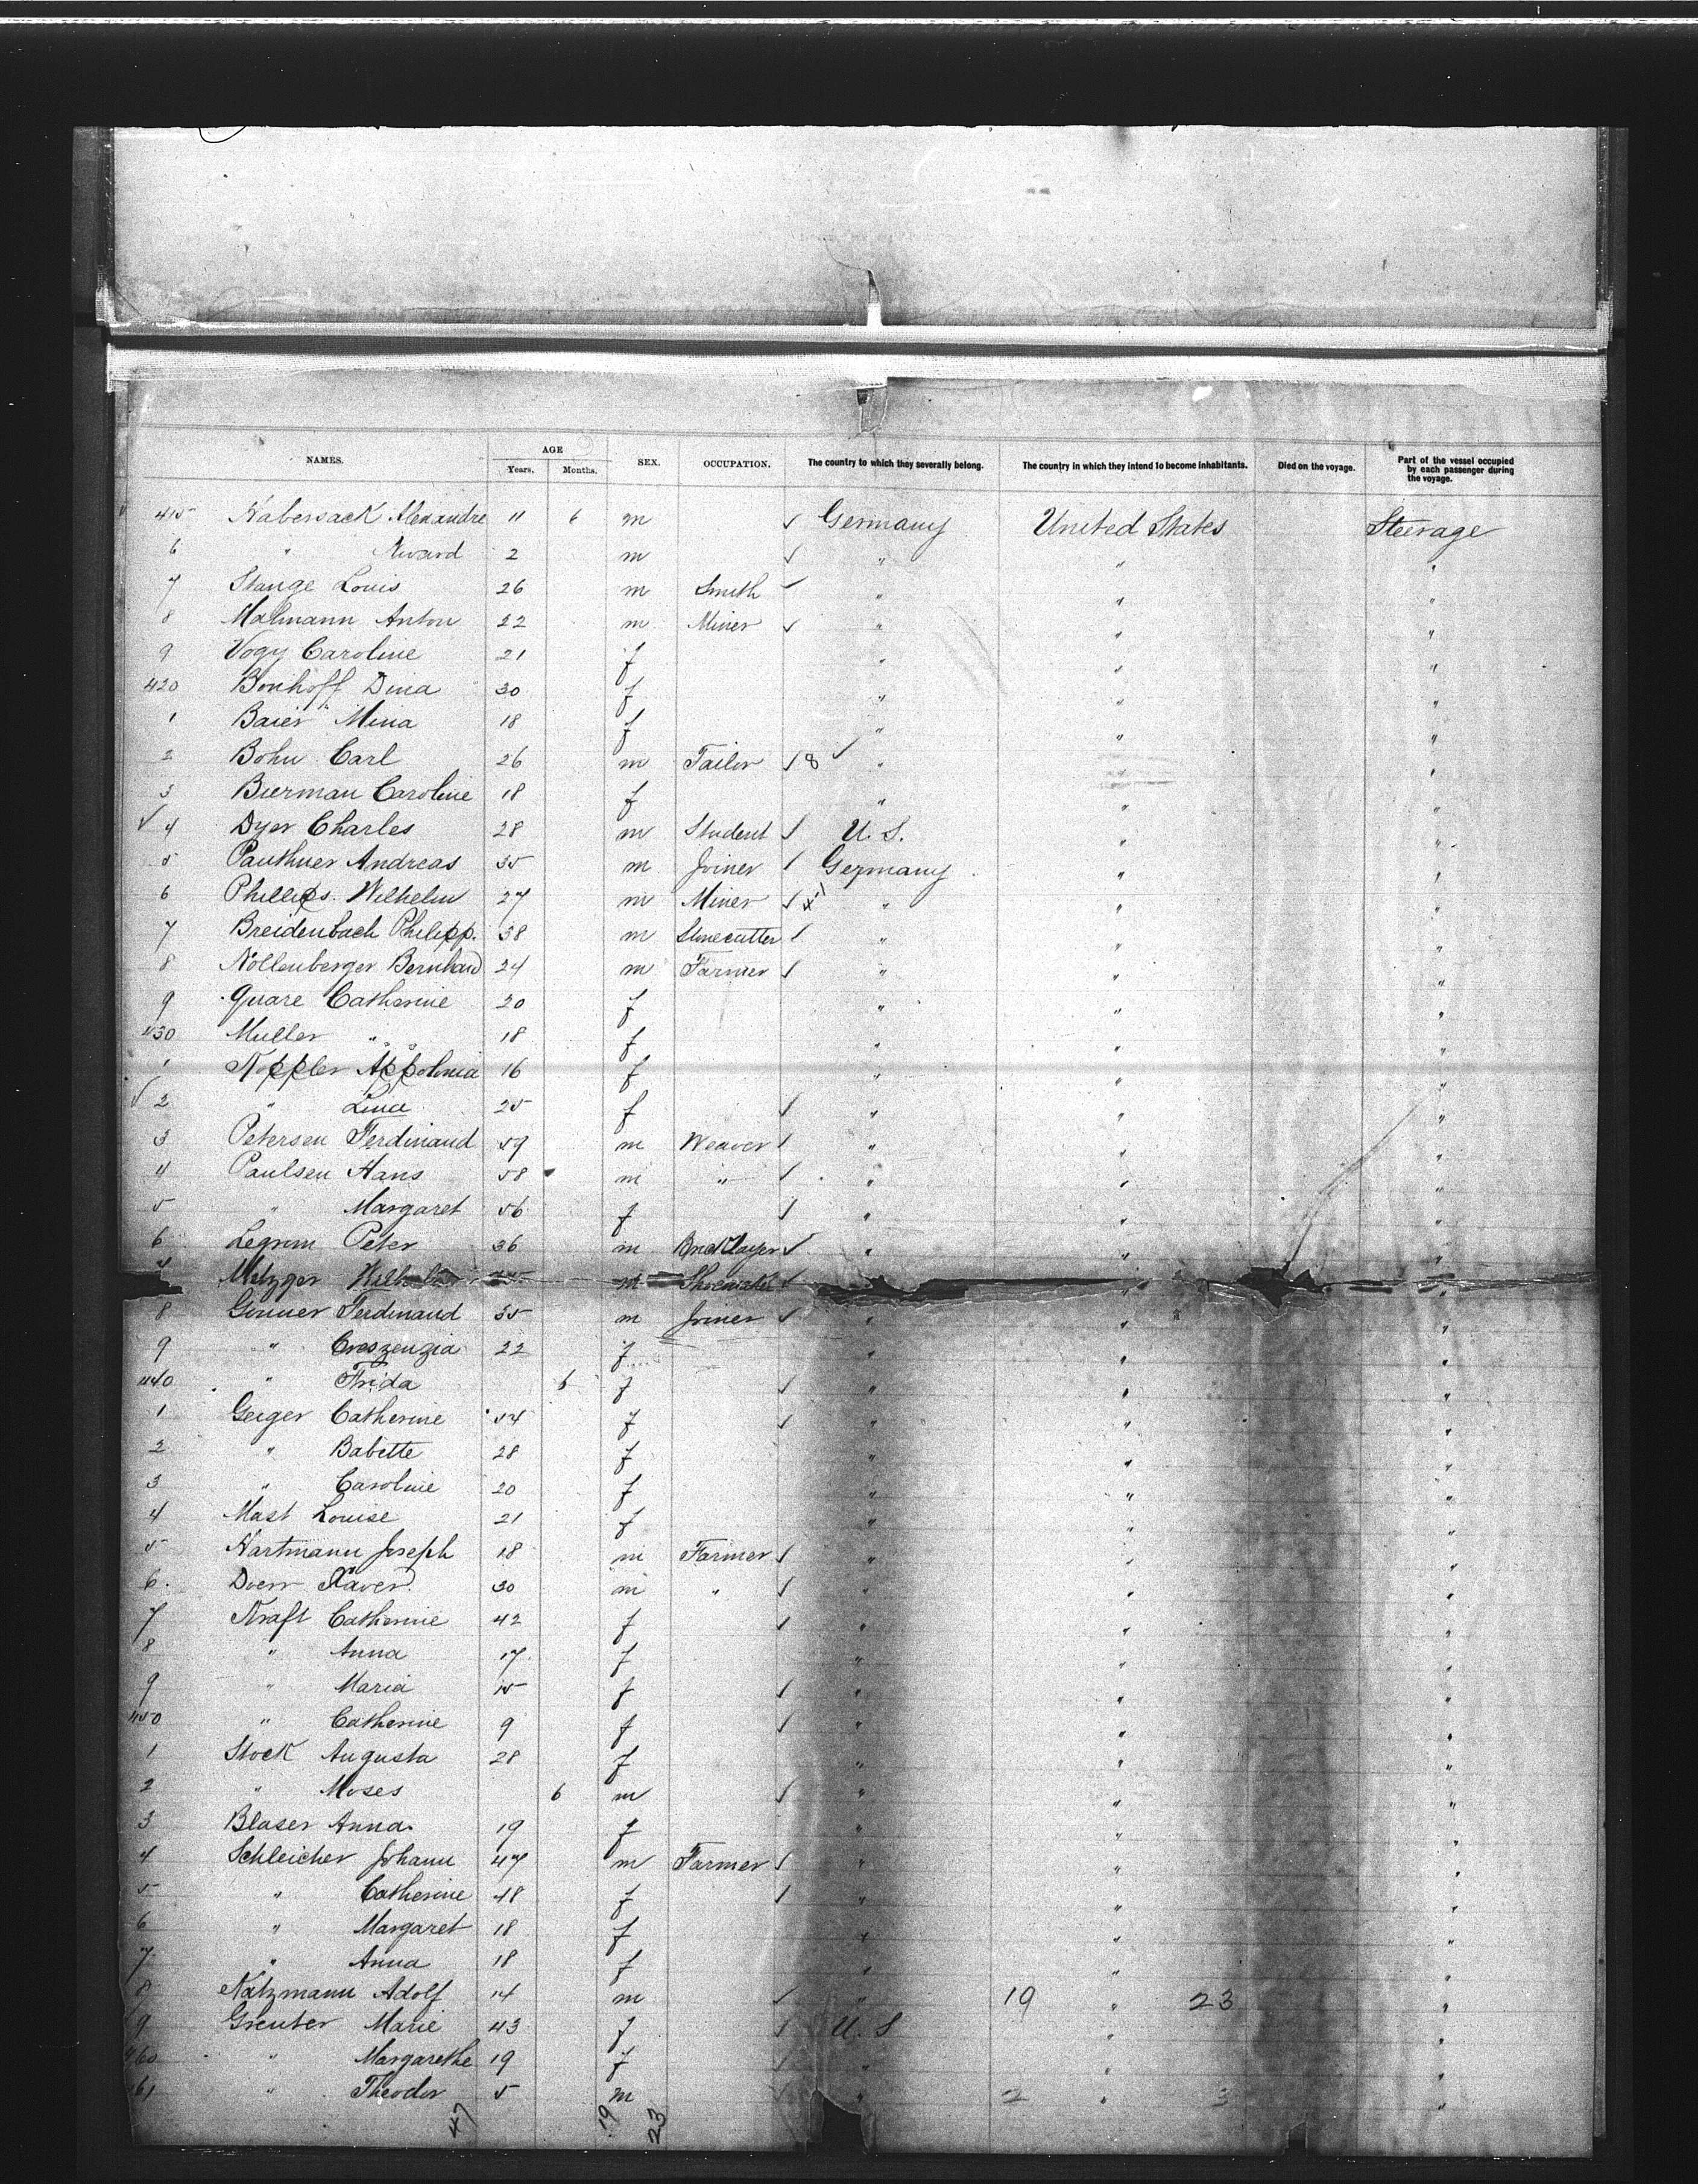 NAMES. AGE Years. Months. SEX. OCCUPATION. The country to which they severally belong. The country in which they intend to become inhabitants. Died on the voyage. Part of the vessel occupied by each passenger during the voyage.
415 Kabersack Alexandre 11 6 m Germany United States Steerage
6 " 2 m " " "
7 Stange Louis 26 m Smith " " "
8 Malmann Anton 22 m Miner " " "
9 Vogy Caroline 21 f " " "
420 Bonhoff Dina 30 f " " "
1 Baier Mina 18 f " " "
2 Bohn Carl 26 m Tailor 8 " " "
3 Bierman Caroline 18 f " " "
4 Dyer Charles 28 m Student U. S. " "
5 Pauthner Andreas 35 m Joiner Germany " "
6 Phillips Wilhelm 27 m Miner " " "
7 Breidenbach Philipp. 38 m Stonecutter " " "
8 Nollenberger Bernhard 24 m Farmer " " "
9 Quare Catherine 20 f " " "
430 Muller " 18 f " " "
1 Koppler Appolonia 16 f " " "
2 " Lina 25 f " " "
3 Petersen Ferdinand 59 m Weaver " " "
4 Paulsen Hans 58 m " " " "
5 " Margaret 56 f " " "
6 Legrom Peter 36 m Bricklayer " " "
7 Metzger Wilhelm m Shoemaker " "
8 Gonner Ferdinand 35 m Joiner " " "
9 " Creszenzia 22 f " " "
440 " Frida 6 f " " "
1 Geiger Catherine 54 f " " "
2 " Babette 28 f " " "
3 " Caroline 20 f " " "
4 Mast Louise 21 f " " "
5 Hartmann Joseph 18 m Farmer " " "
6. Doerr Xaver 30 m " " " "
7 Kraft Catherine 42 f " " "
8 " Anna 17 f " " "
9 " Maria 15 f " " "
450 " Catherine 9 f " " "
1 Stock Augusta 28 f " " "
2 " Moses 6 m " " "
3 Blaser Anna 19 f " " "
4 Schleicher Johann 47 m Farmer " " "
5 " Catherine 48 f " " "
6 " Margaret 18 f " " "
7 " Anna 18 f " " "
8 Katzmann Adolf 14 m " 19 " 23 "
9 Greuter Marie 43 f U. S " "
460 " Margarethe 19 f " " "
461 " Theodor 5 m " 2 " 3 "
47 19 23